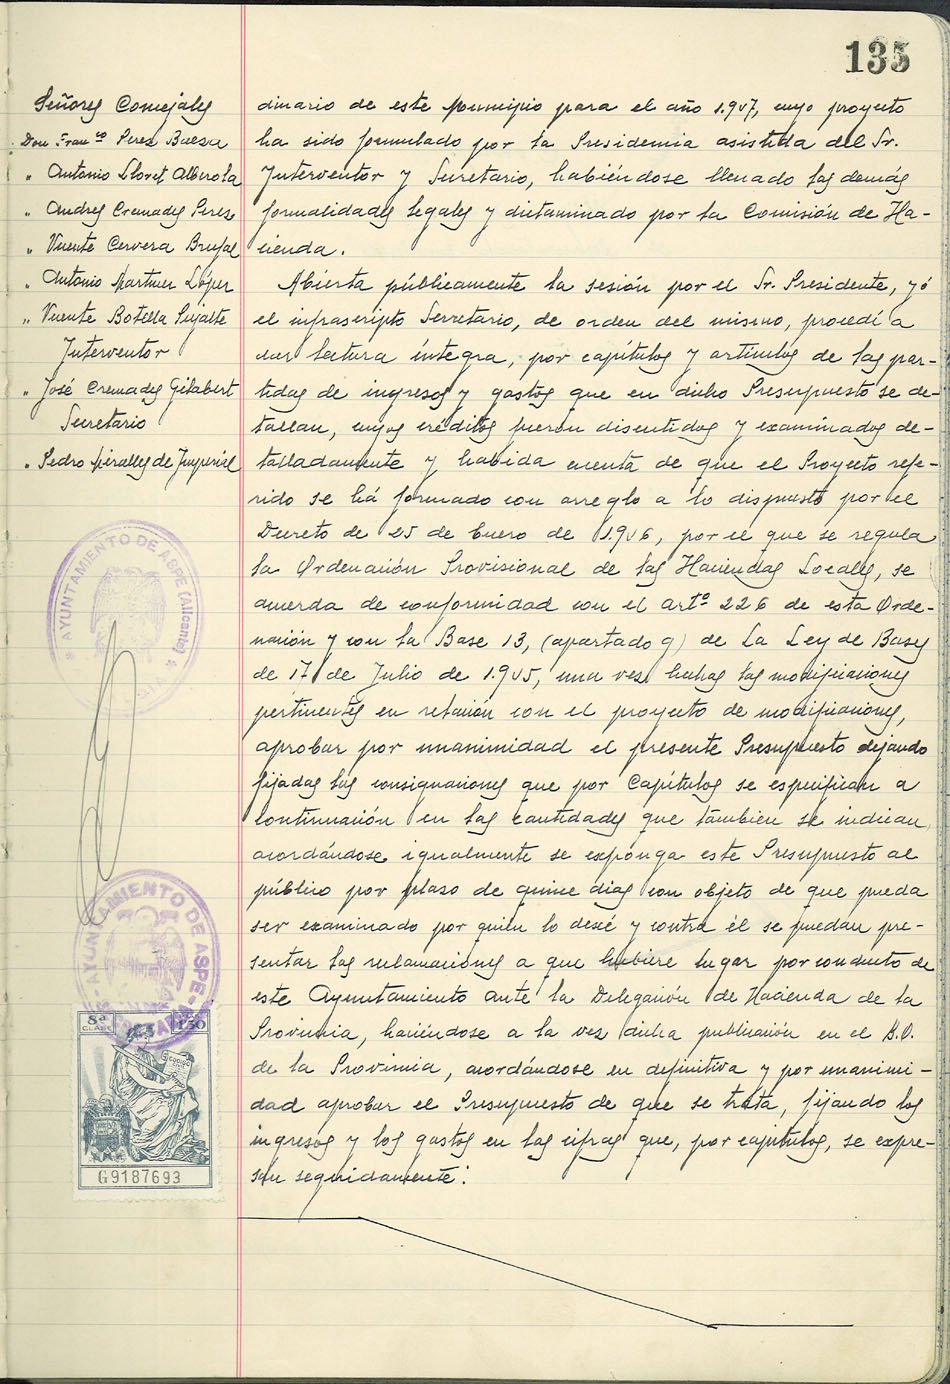 135
Señores Concejales
Don Fran co Perez Baeza
" Antonio Lloret Alberola
" Andres Cremades Perez
" Vicente Cervera Brufal
" Antonio Martinez López
" Vicente Botella Pujalte
Interventor
" José Cremades Gilabert
Secretario
" Pedro Miralles de Imperial
dinario de este Municipio para el año 1.947, cuyo proyecto
ha sido formulado por la Presidencia asistida del Sr.
Interventor y Secretario, habiéndose llenado las demás
formalidades legales y dictaminado por la Comisión de Ha-
cienda.
Abierta públicamente la sesión por el Sr. Presidente, yó
el infrascripto Secretario, de orden del mismo, procedí a
dar lectura íntegra, por capítulos y artículos de las par-
tidas de ingresos y gastos que en dicho Presupuesto se de-
tallan, cuyos créditos fueron discutidos y examinados de-
talladamente y habida cuenta de que el Proyecto refe-
rido se há formado con arreglo a lo dispuesto por el
Decreto de 25 de Enero de 1.946, por el que se regula
la Ordenación Provisional de las Haciendas Locales, se
acuerda de conformidad con el artº 226 de esta Orde-
nación y con la Base 13, (apartado 9) de La Ley de Bases
de 17 de Julio de 1.945, una vez hechas las modificaciones
pertinentes en relación con el proyecto de modificaciones,
aprobar por unanimidad el presente Presupuesto dejando
fijadas las consignaciones que por Capítulos se especifican a
continuación en las cantidades que también se indican,
acordándose igualmente se exponga este Presupuesto al
público por plazo de quince días con objeto de que pueda
ser examinado por quien lo desée y contra él se puedan pre-
sentar las reclamaciones a que hubiere lugar por conducto de
este Ayuntamiento ante la Delegación de Hacienda de la
Provincia, haciéndose a la vez dicha publicación en el B.O.
de la Provincia, acordándose en definitiva y por unanimi-
dad aprobar el Presupuesto de que se trata, fijando los
ingresos y los gastos en las cifras que, por capítulos, se expre-
san seguidamente:
AYUNTAMIENTO DE ASPE (Alicante)
AYUNTAMIENTO DE ASPE
8ª
CLASE
1'50
CODIGO
G9187693